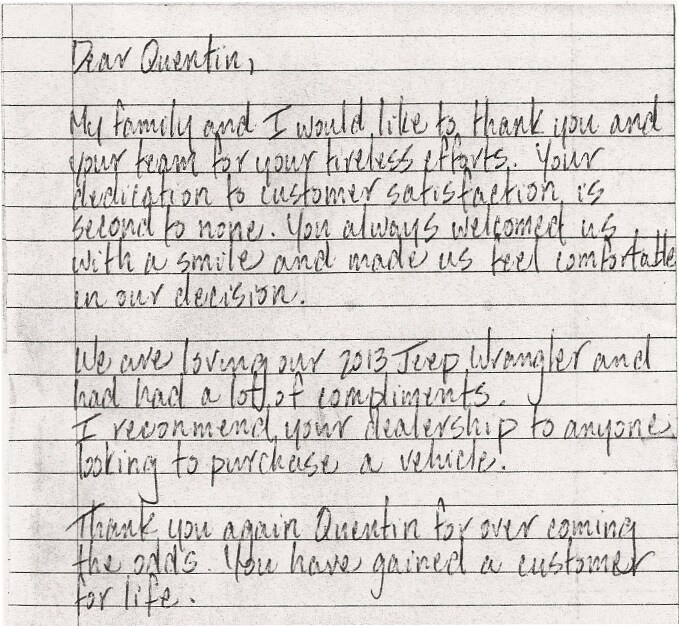 Dear Quentin,
My family and I would like to thank you and
your team for your tireless efforts. Your
dedication to customer satisfaction is
second to none. You always welcomed us
with a smile and made us feel comfortable
in our decision.
We are loving our 2013 Jeep Wrangler and
had had a lot of compliments.
I recommend your dealership to anyone
looking to purchase a vehicle.
Thank you again Quentin for over coming
the odds. You have gained a customer
for life.